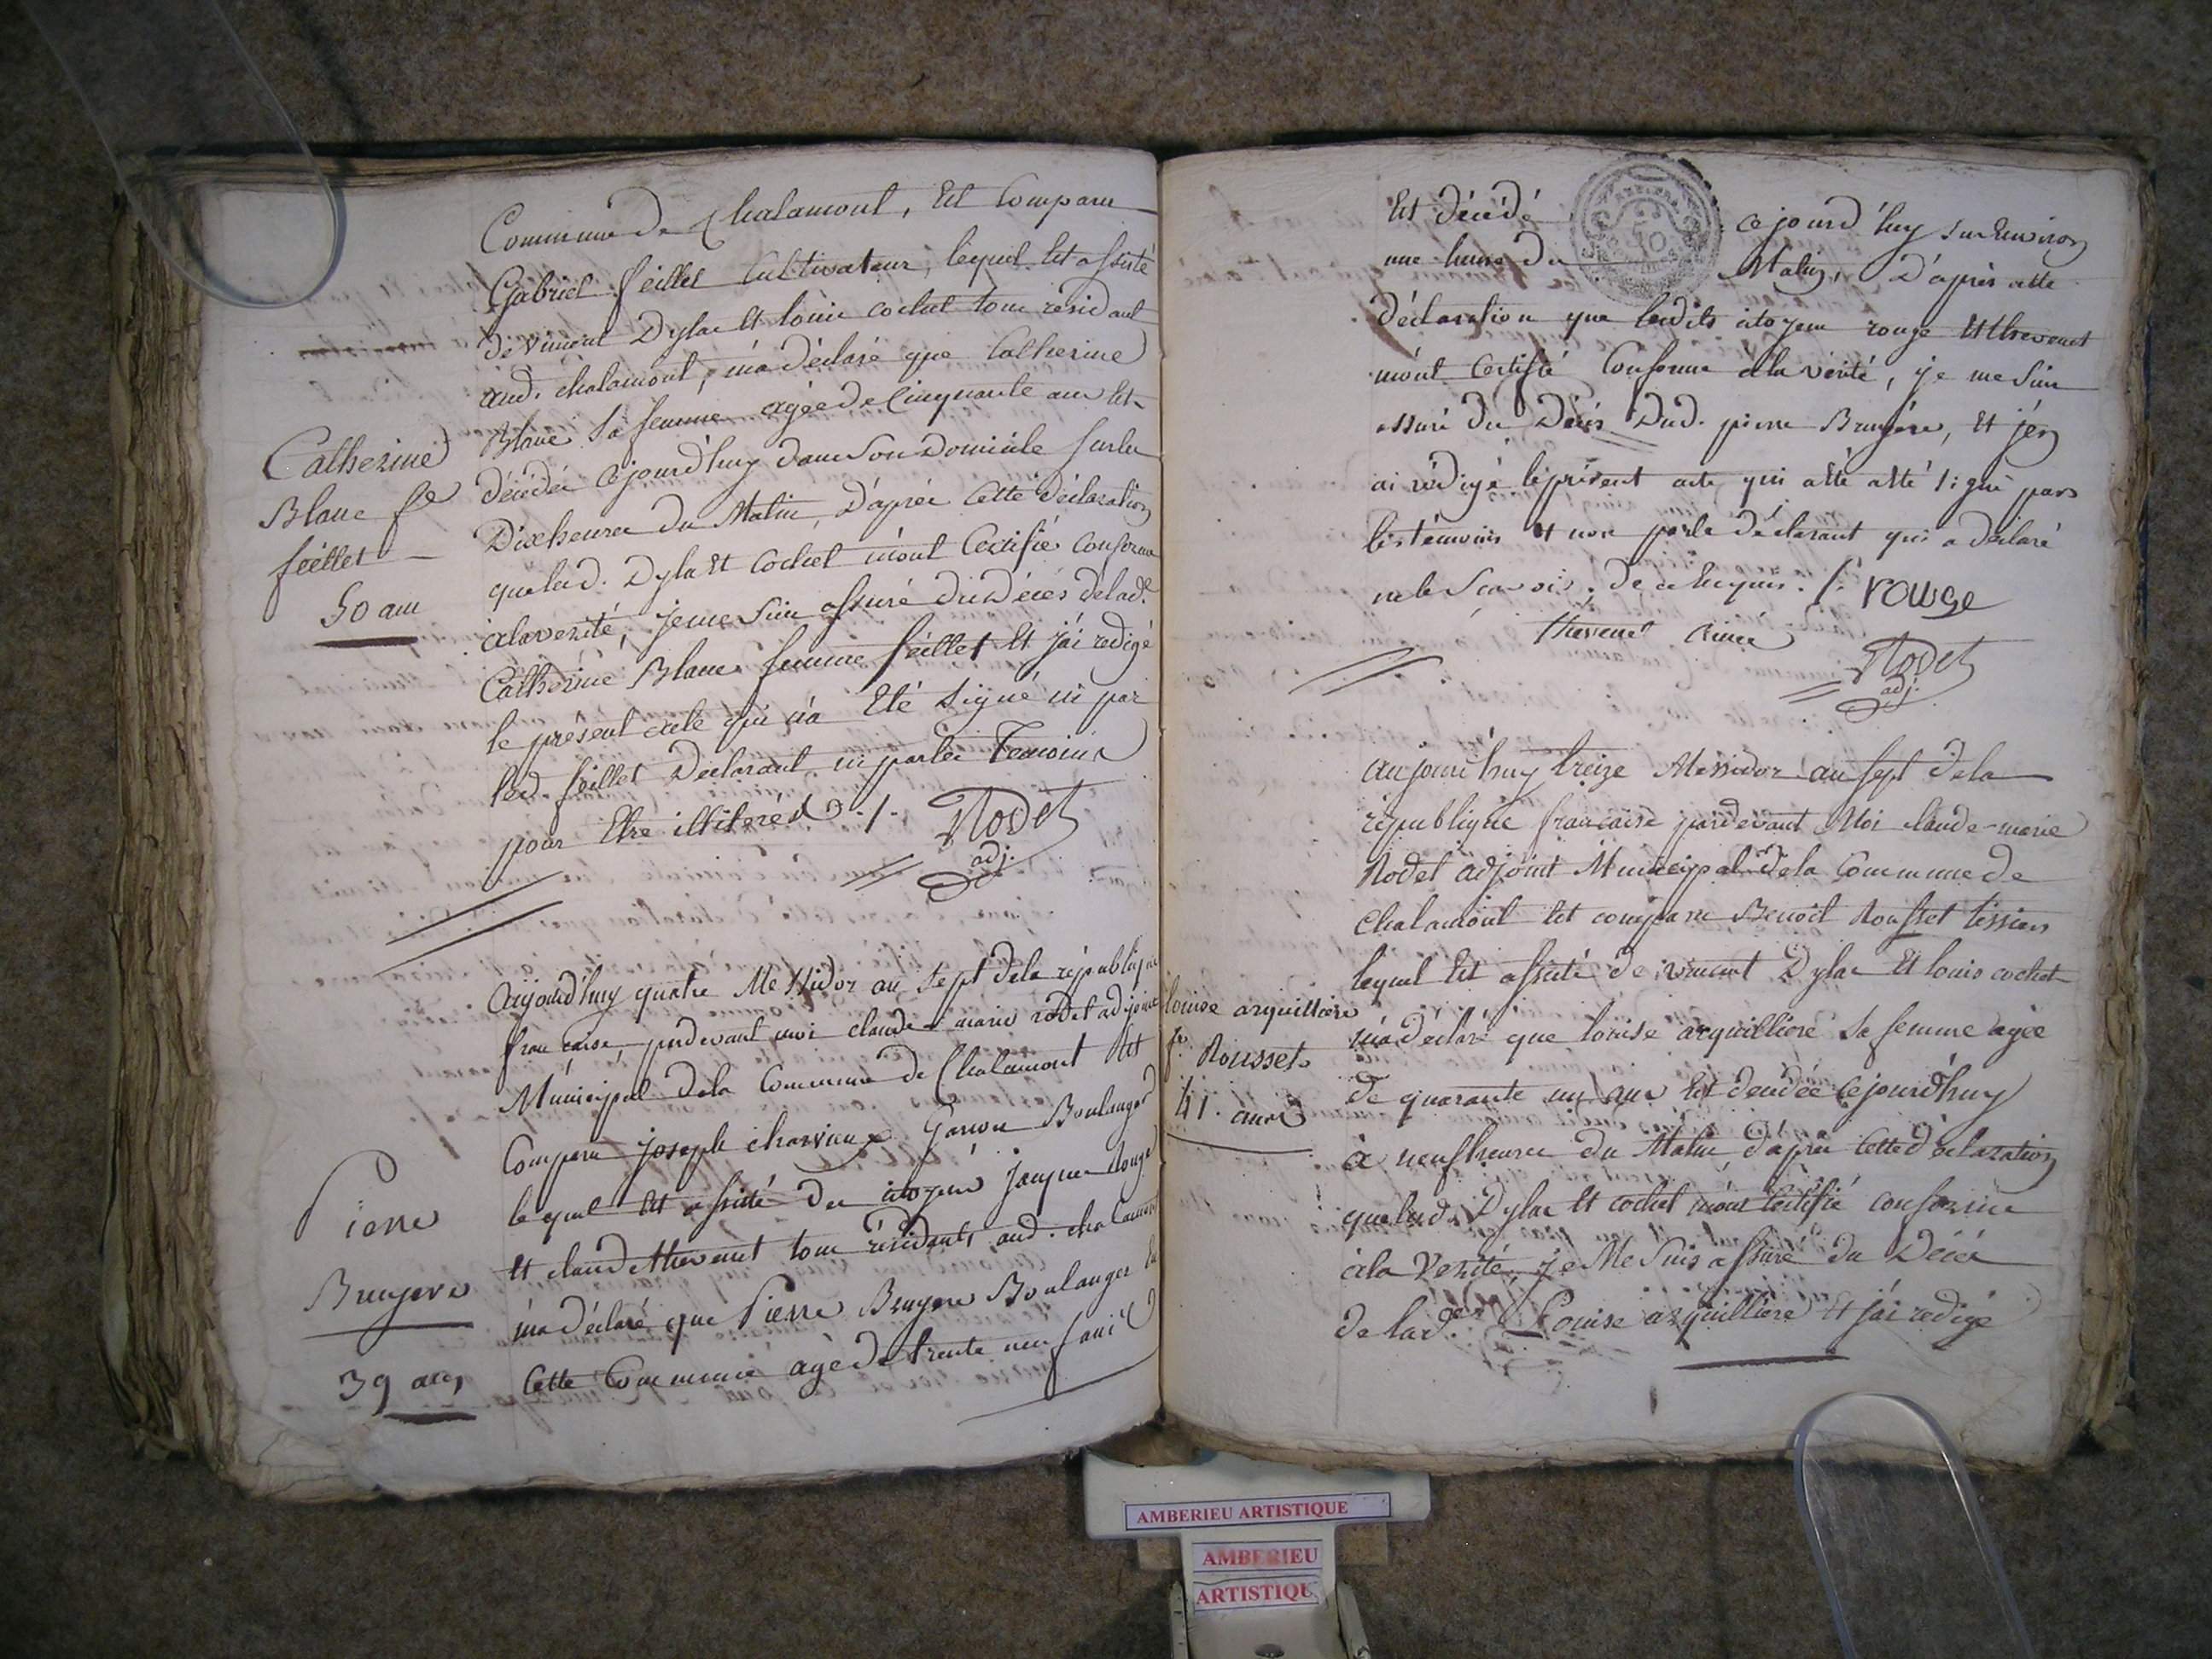 Commune de Chalamont, Est Comparu
Gabriel feillet Cultivateur, lequel Est assisté
de vincent Dylas Et louis cochet tous residant
aud. chalamont, m'a déclaré que Catherine
Blanc Sa femme agée de Cinquante ans Est
décédée cejourd'huy dans Son Domicile Sur les
Dix heures du Matin, D'après Cette déclaration
que lesd. Dylas Et Cochet m'ont Certifié Conforme
alaverité, je me Suis assuré du Décés delad.e
Catherine Blanc femme feillet Et j'ai redigé
le présent acte qui n'a Eté Signé ni par
led. feillet Declarant ni par les Temoins
pour Etre illiterés ./. Rodet
adj.
Catherine
Blanc fe
feillet
50 ans
Aujourd'huy quatre Messidor an Sept dela république
francaise, pardevant moi claude marie rodet adjoint
Municipal dela Commune de Chalamont Est
Comparu joseph charvieux Garcon Boulanger
lequel Est assisté des citoyens jacques Rouge
Et claude thevenet tous résidants aud. chalamont
m'a déclaré que Pierre Bruyere Boulanger
Cette Commune agé de trente neuf ans
Pierre
Bruyere
39 ans
Est décédé cejourd'huy Sur Environ
une heure du Matin, D'après cette
déclaration que lesdits citoyens rouge Et thevenet
m'ont Certifié Conforme àla vérité, je me Suis
assuré du Décés Dud. pierre Bruyere, Et j'en
ai rédigé le présent acte qui a été signé par
les témoins Et non par le déclarant qui a déclaré
ne le Scavoir, De ce Enquis. /. rouge
thevenet
Rodet
adj.
Louise arquilliere
fe. Rousset
41. ans
Aujourd'huy treize Messidor an Sept dela
république francaise pardevant Moi claude-marie
Rodet adjoint Municipal dela Commune de
Chalamont Est comparu Benoit Rousset tissier
lequel Est assisté de vincent Dylas Et louis cochet
m'a déclaré que louise arquilliere Sa femme agée
de quarante un ans Est décédée Cejourd'huy
à neuf heures du Matin d'après Cette déclaration
que lesd. Dylas Et cochet m'ont Certifié conforme
àla Verité, je Me Suis assuré du Décés
de lad.e Louise arquilliere Et j'ai redigé
AMBERIEU ARTISTIQUE
AMBERIEU
ARTISTIQU